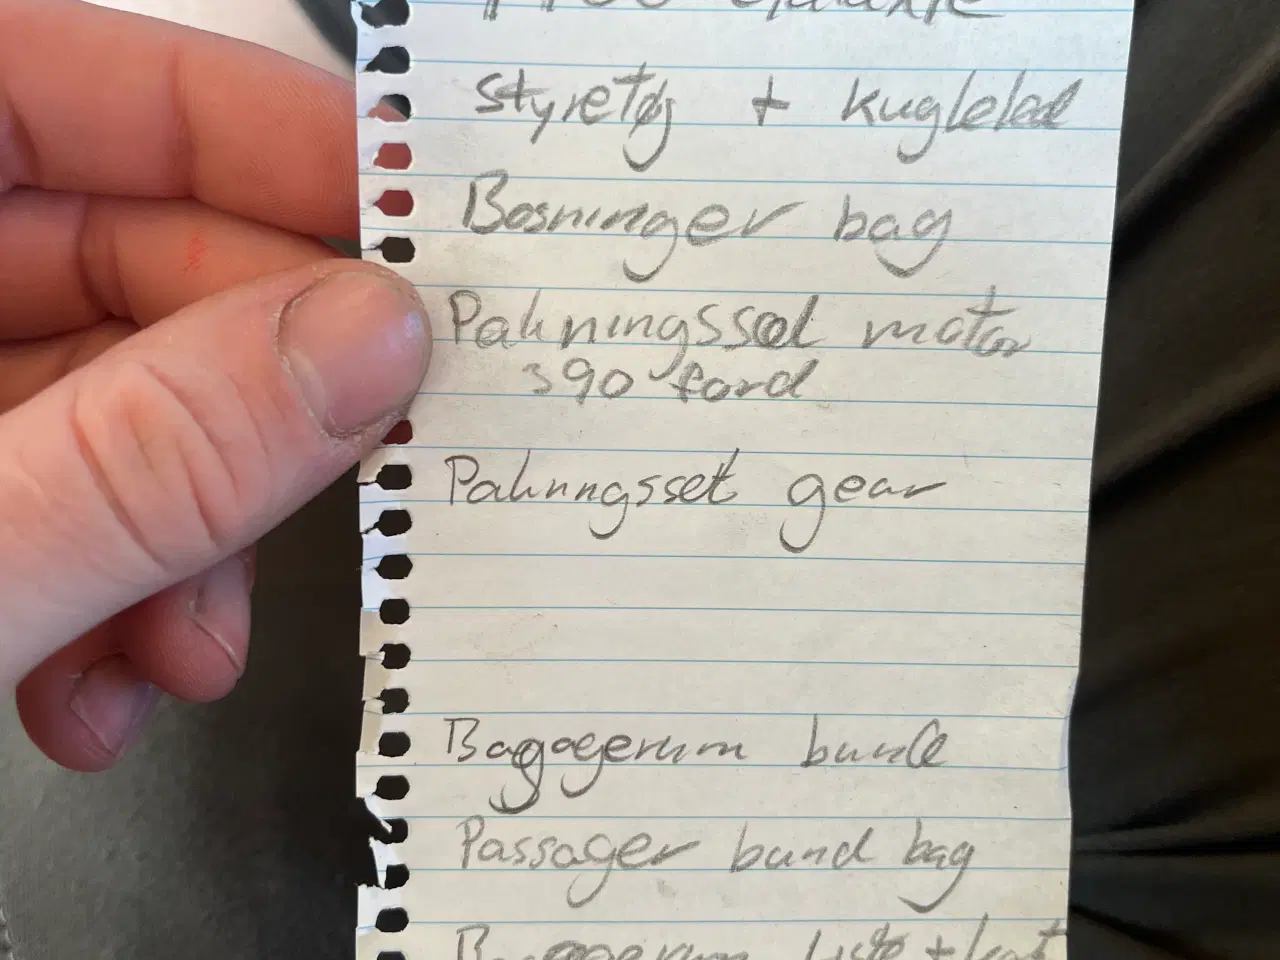 styretøj + kugleled
Bøsninger bag
Pakningssæt motor
390 ford
Pakningsset gear
Bagagerum bund
Passager bund bag
Bagagerum